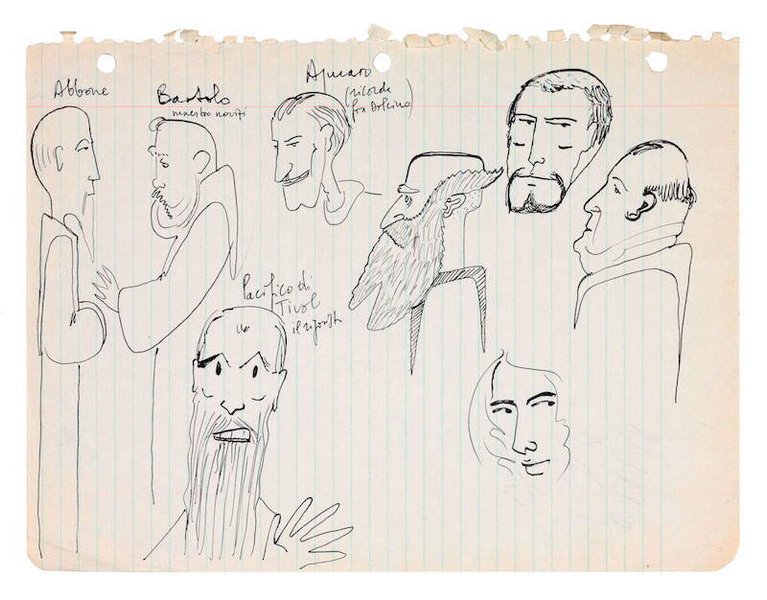 Abbone
Bartolo
maestro novizi
Aymaro
(ricorda
fra Dolcino)
Pacifico di
Tivoli